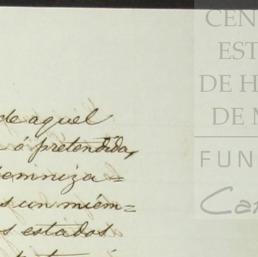 de aquel
ó pretendida,
emniza=
s un miem=
s estados
CEN
EST
DE H
DE M
FUN
Car